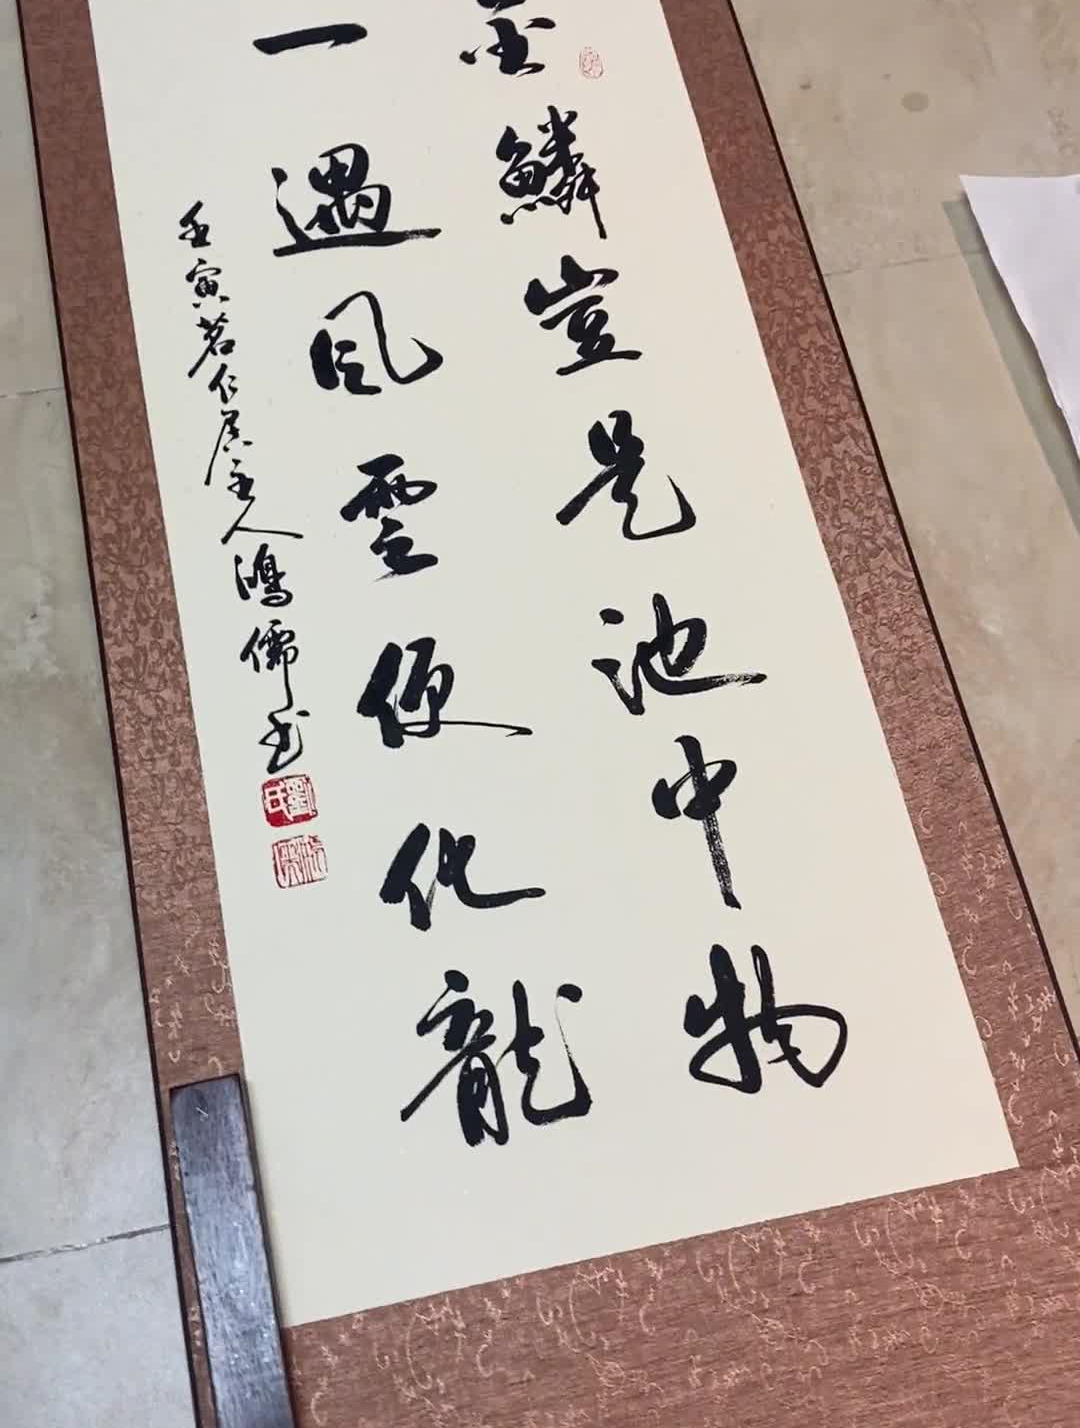 金鱗豈是池中物
一遇風雲便化龍
壬寅茗仁居主人鴻儒書
劉氏